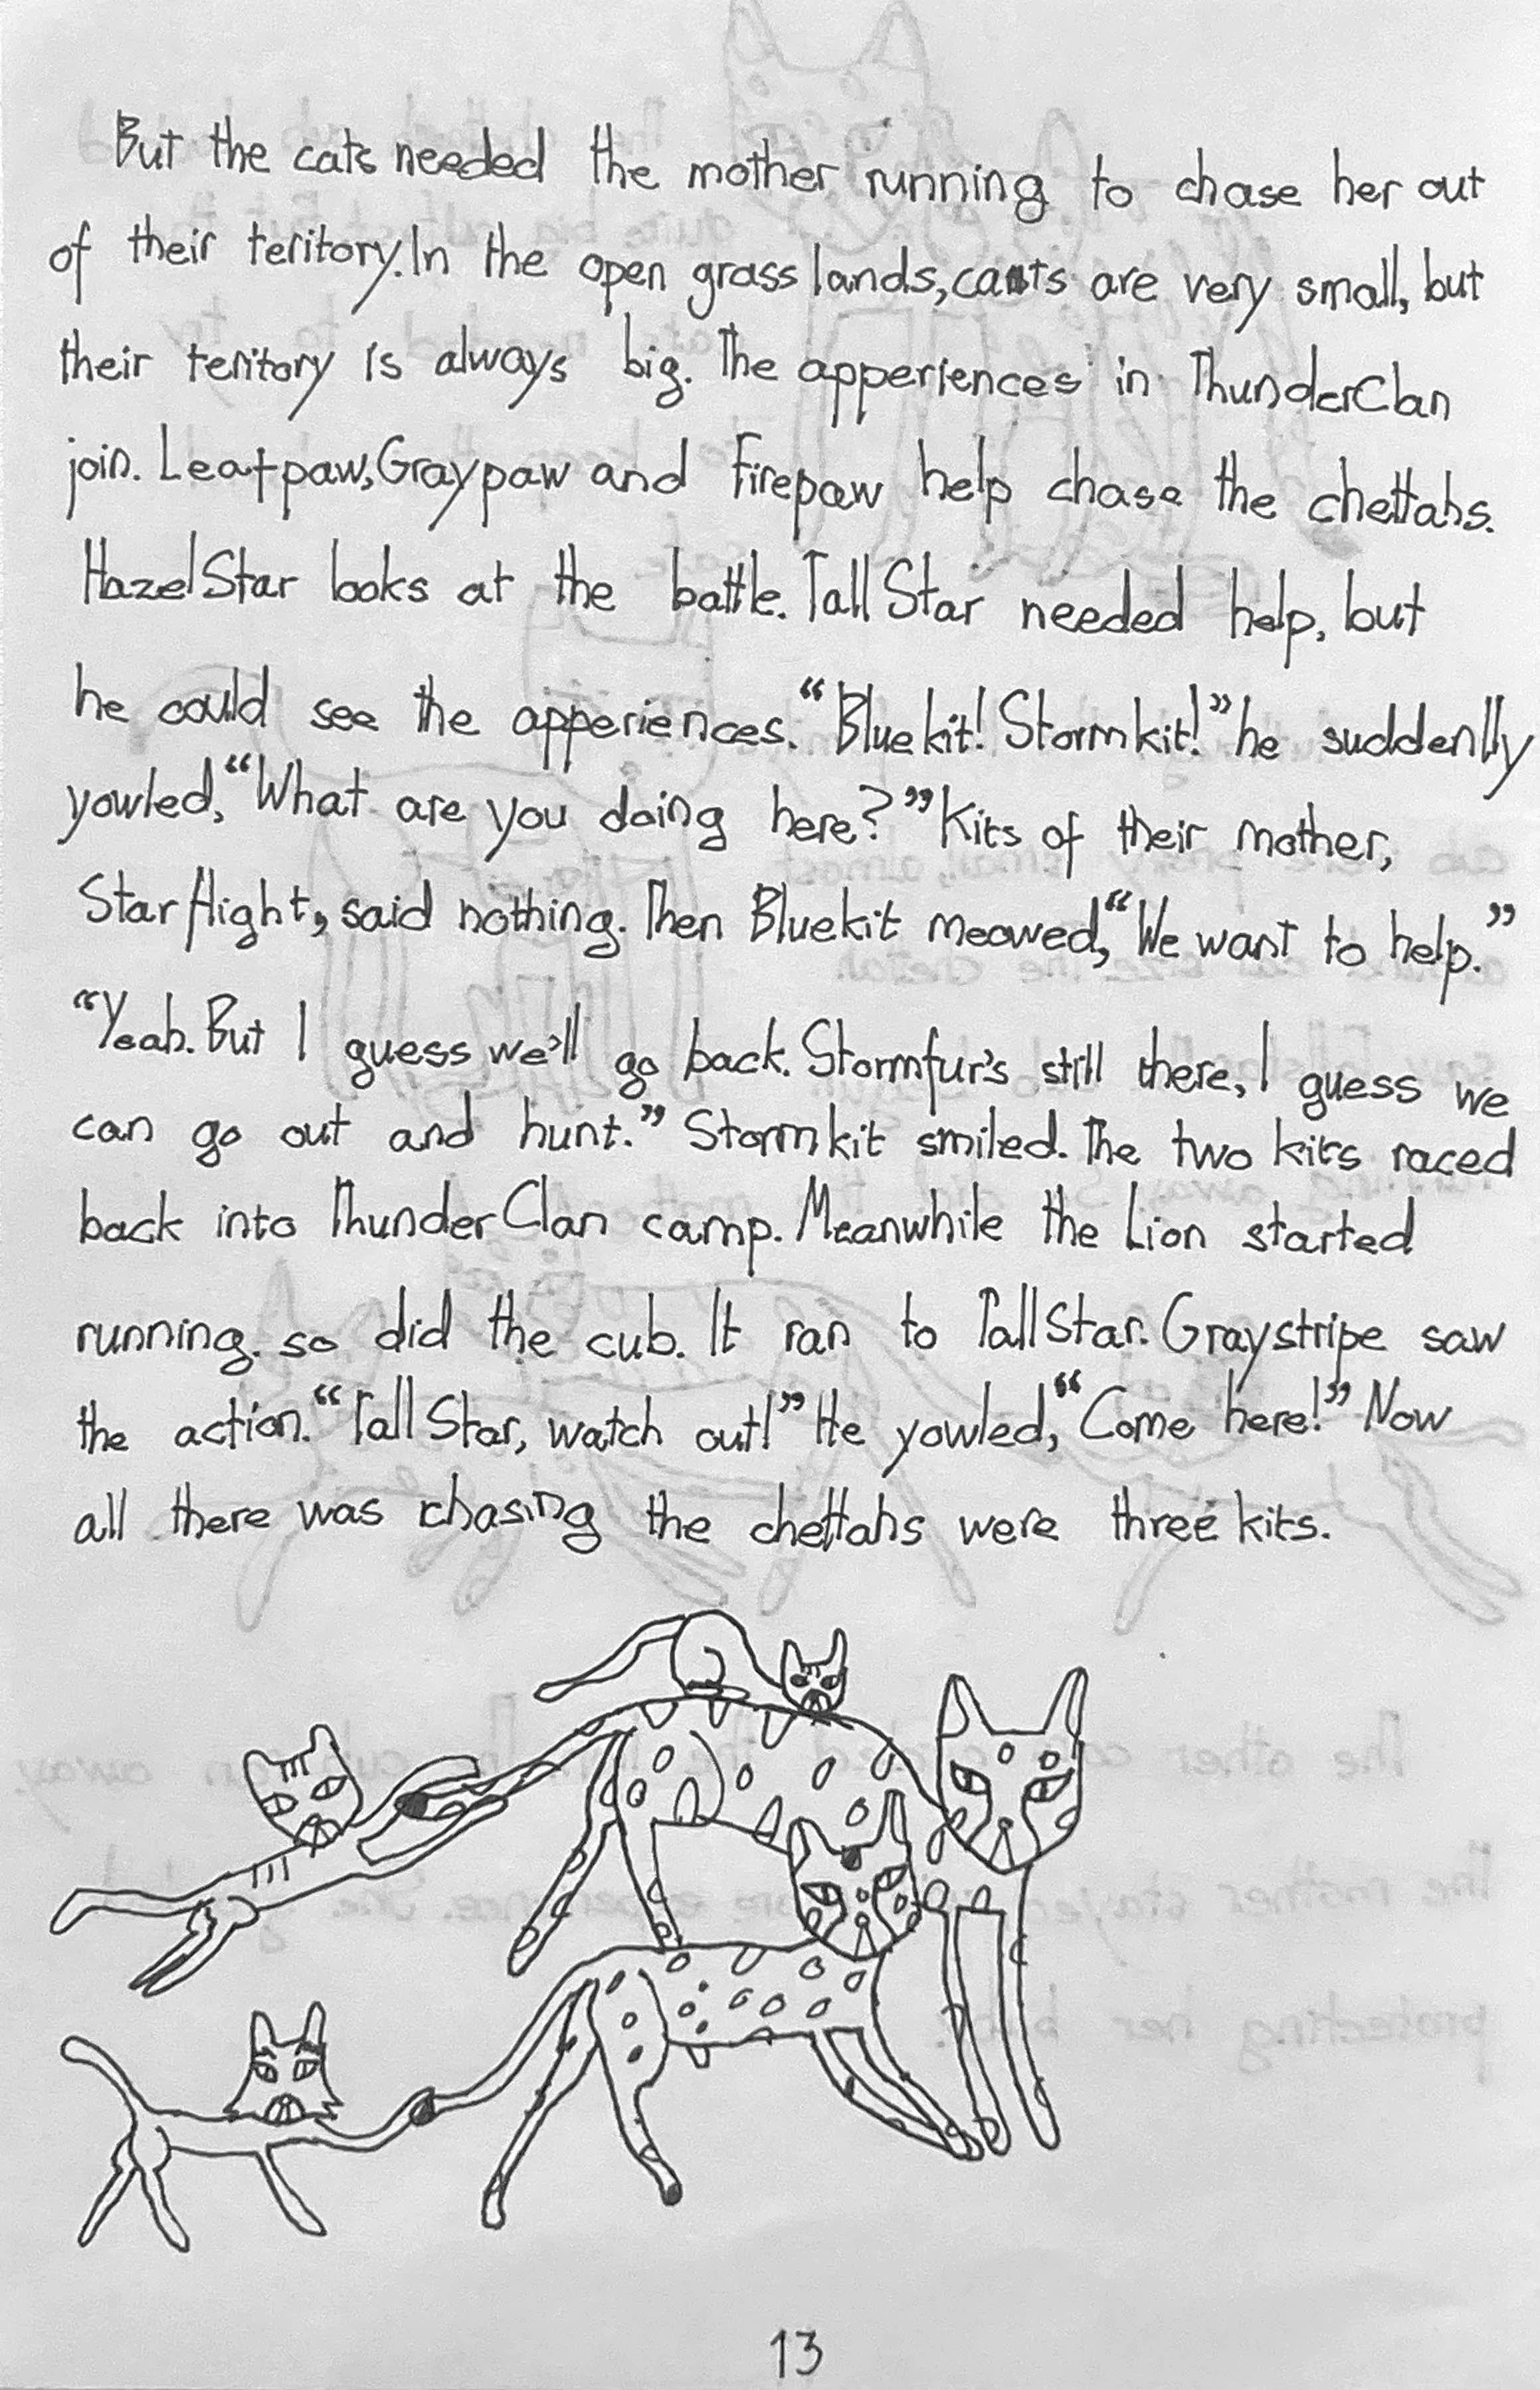 But the cats needed the mother running to chase her out
of their teritory. In the open grass lands, cats are very small, but
their teritory is always big. The apperiences in ThunderClan
join. Leafpaw, Graypaw and Firepaw help chase the chettahs.
HazelStar looks at the battle. TallStar needed help, but
he could see the apperiences. “Bluekit! Stormkit!” he suddenlly
yowled, “What are you doing here?” Kits of their mother,
Starflight, said nothing. Then Bluekit meowed, “We want to help.”
“Yeah. But I guess we’ll go back. Stormfur’s still there, I guess we
can go out and hunt.” Stormkit smiled. The two kits raced
back into ThunderClan camp. Meanwhile the Lion started
running. so did the cub. It ran to TallStar. Graystripe saw
the action. “TallStar, watch out!” He yowled, “Come here!” Now
all there was chasing the chettahs were three kits.
13